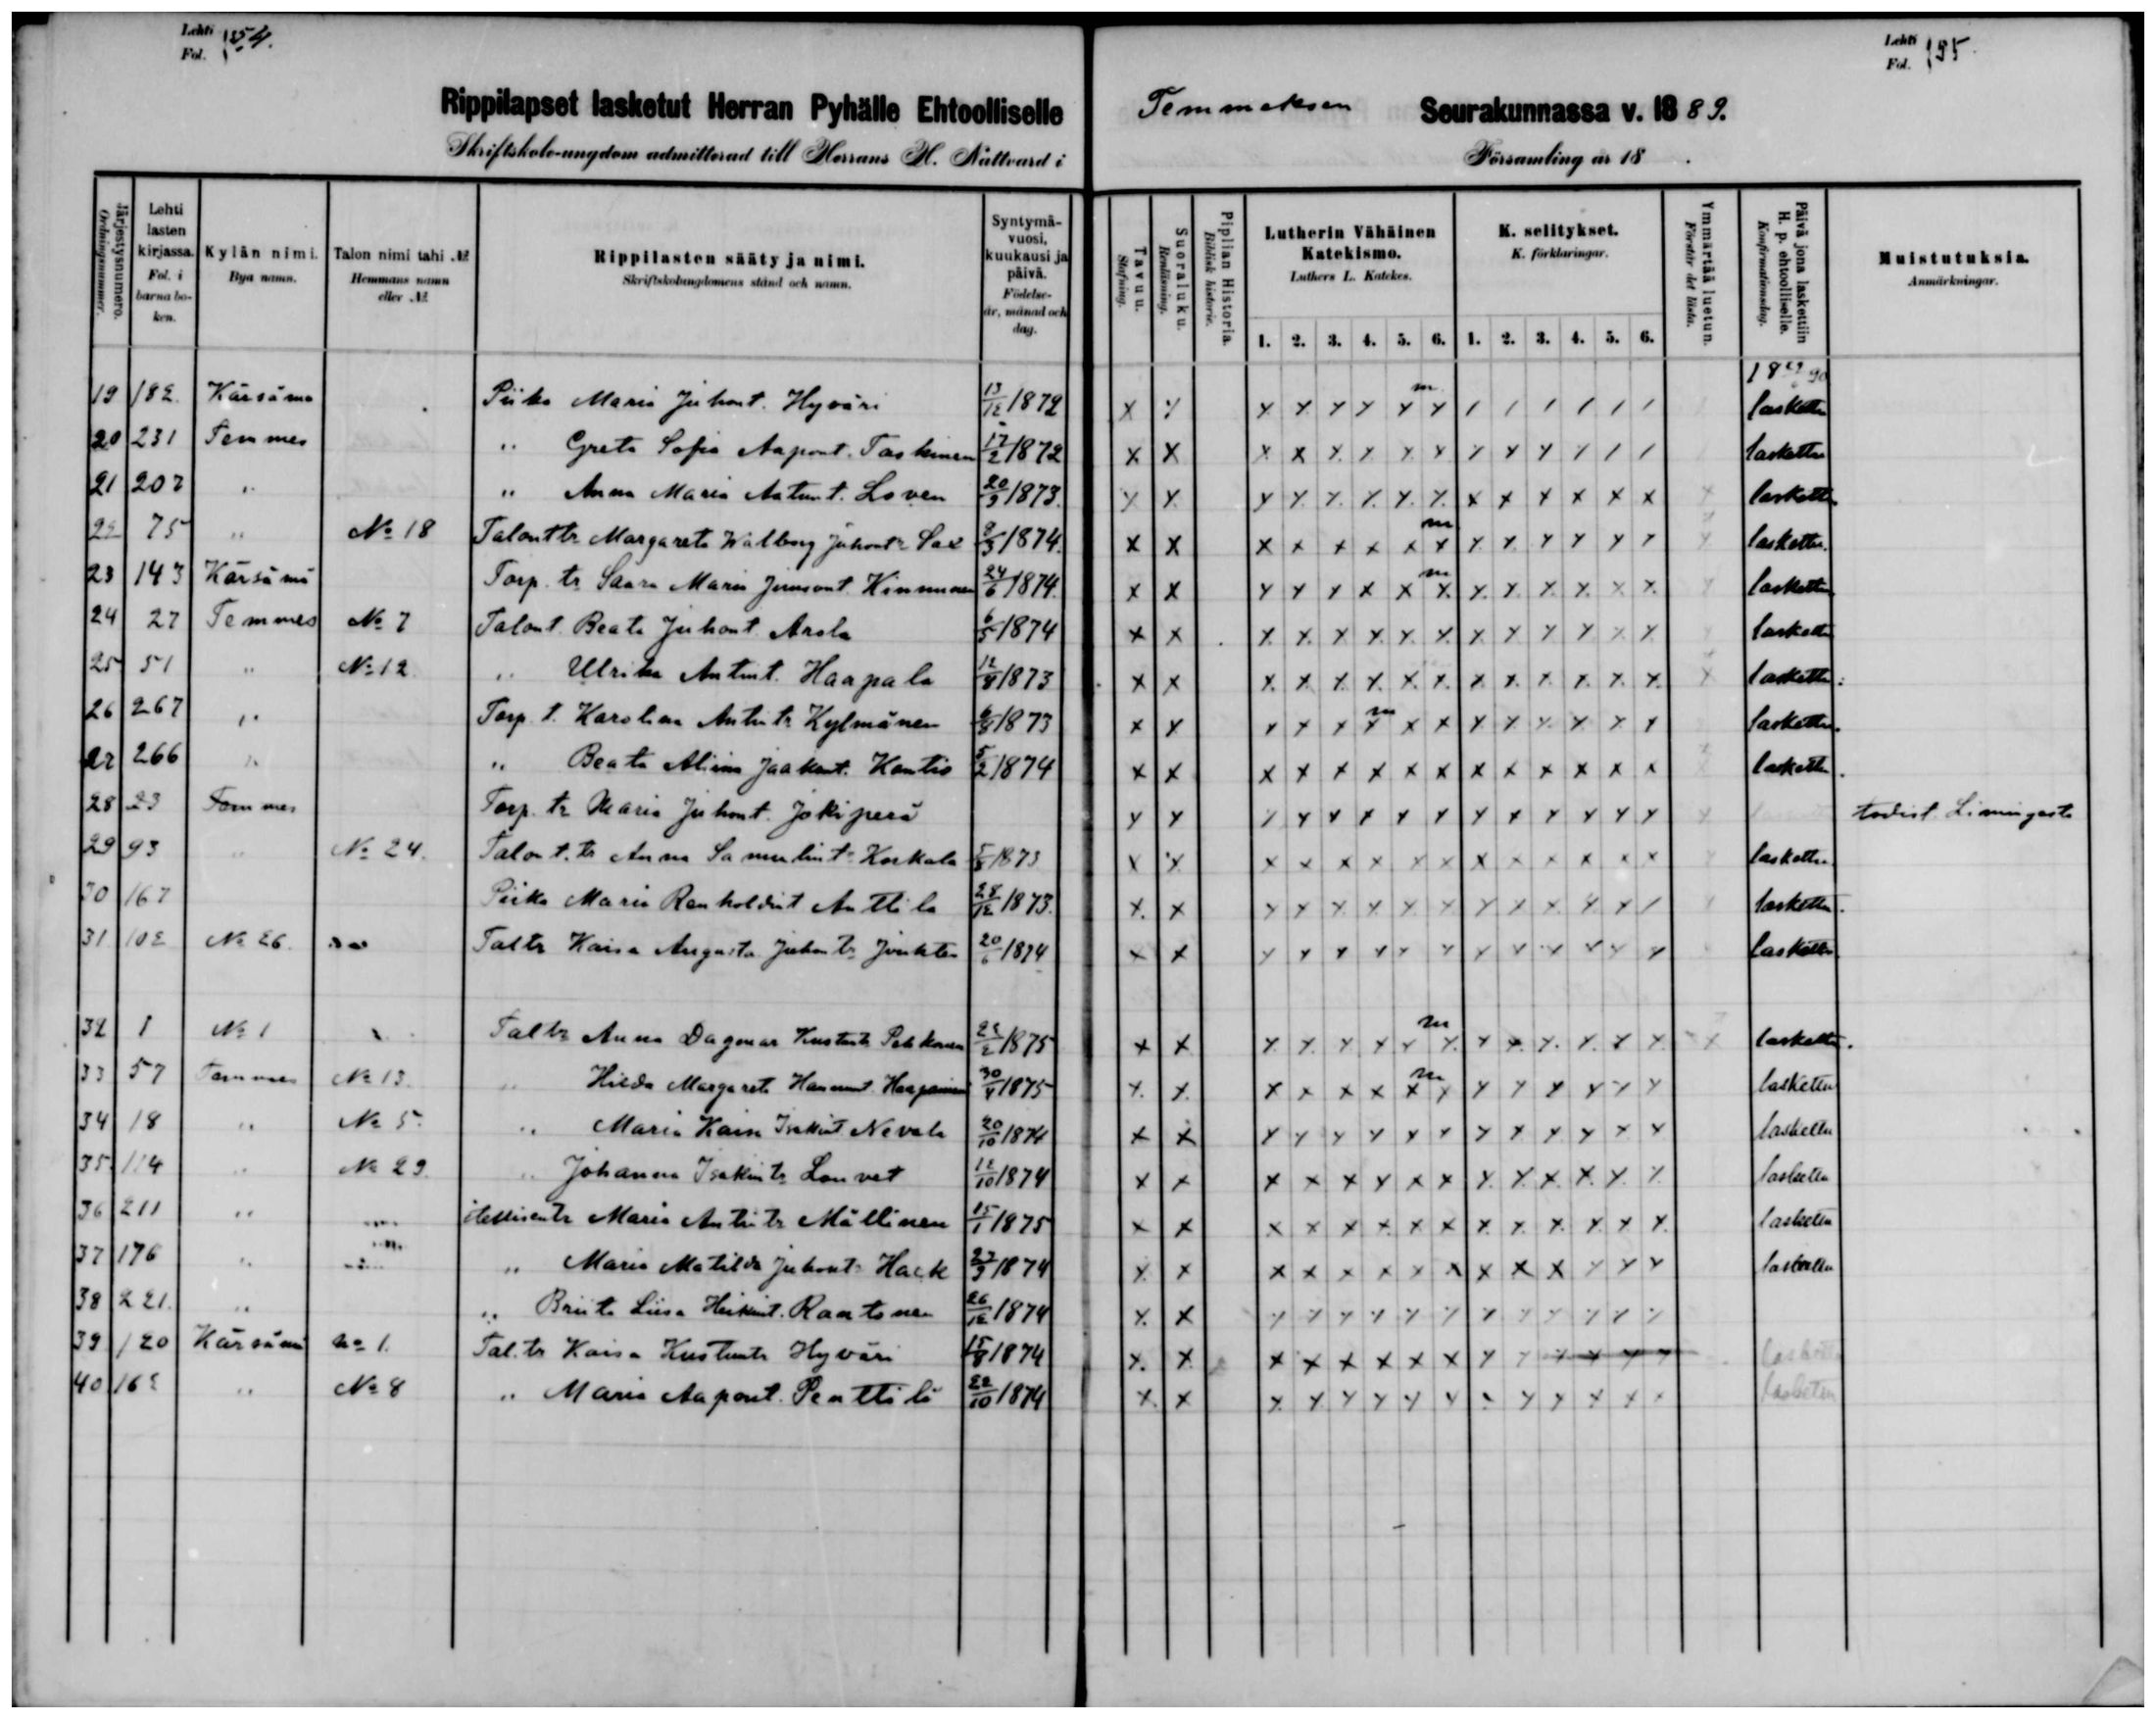 Lehti Fol. 154.
Lehti Fol. 155.
Rippilapset lasketut Herran Pyhälle Ehtoolliselle Temmeksen Seurakunnassa v. 1889.
Skriftskole-ungdom admitterad till Herrans H. Nattvard i Församling år 18 .
Järjestysnumero. Ordningsnummer.
Lehti lasten kirjassa. Fol. i barna boken.
Kylän nimi. Bya namn.
Talon nimi tahi № Hemmans namn eller №
Rippilasten sääty ja nimi. Skriftskolungdomens stånd och namn.
Syntymä-vuosi, kuukausi ja päivä. Födelse-år, månad och dag.
Tavuu. Stafning.
Suoraluku. Renläsning.
Piplian Historia. Biblisk historie.
Lutherin Vähäinen Katekismo. Luthers L. Katekes.
K. selitykset. K. förklaringar.
Ymmärtää luetun. Förstår det lästa.
Päivä jona laskettiin H. p. ehtoolliselle. Konfirmationsdag.
Muistutuksia. Anmärkningar.
1. 2. 3. 4. 5. 6. 1. 2. 3. 4. 5. 6.
19 182. Kärsämä Piika Maria Juhont. Hyväri 13/12 1872 laskettu
20 231 Temmes " Greta Sofia Aapont. Taskinen 17/2 1872 laskettu
21 207 " " Anna Maria Antint. Loven 20/9 1873. laskettu
22 75 " № 18 Talontr Margareta Walborg Juhontr 8/3 1874. laskettu.
23 143 Kärsämä Torp. tr Saara Maria Kinnunen 24/6 1874. laskettu
24 27 Temmes № 7 Talont. Beata Juhont. Arola 6/5 1874 laskettu
25 51 " № 12 " Ulrika Antint. Haapala 12/8 1873 laskettu.
26 267 " Torp. t. Karolina Antintr Kylmänen 6/8 1873 laskettu.
27 266 " " Beata Aliina Jaakont. Kontio 5/2 1874 laskettu.
28 23 Temmes Torp. tr Maria Juhont. Jokiperä todist. Limingasta
29 93 " № 24. Talont. tr Anna Samulint. Korkala 1873 laskettu.
30 167 Piika Maria Renholdint Anttila 28/12 1873. laskettu.
31 102 № 26. Taltr Kaisa Augusta Juhontr 20/6 1874 laskettu
32 1 № 1 Taltr Anna Dagmar Kustintr Pelkonen 1875 laskettu.
33 57 Temmes № 13. " Hilda Margareta Hannunt. 30/4 1875 laskettu
34 18 " № 5. " Maria Kaisa Isakint Nevala 20/10 1874 laskettu
35 114 " № 29. " Johanna Isakintr Louvet 12/10 1874 laskettu
36 211 " itellisentr Maria Antintr Mällinen 15/1 1875 laskettu
37 176 " " Maria Matilda Juhont. Hack 27/9 1874 laskettu
38 221. " " Briita Liisa Heikint. Raatonen 26/12 1874
39 120 Kärsämä no 1. Tal. tr Kaisa Kustintr Hyväri 15/8 1874 laskettu
40 162 " № 8 " Maria Aapont. Penttilä 22/10 1874 laskettu